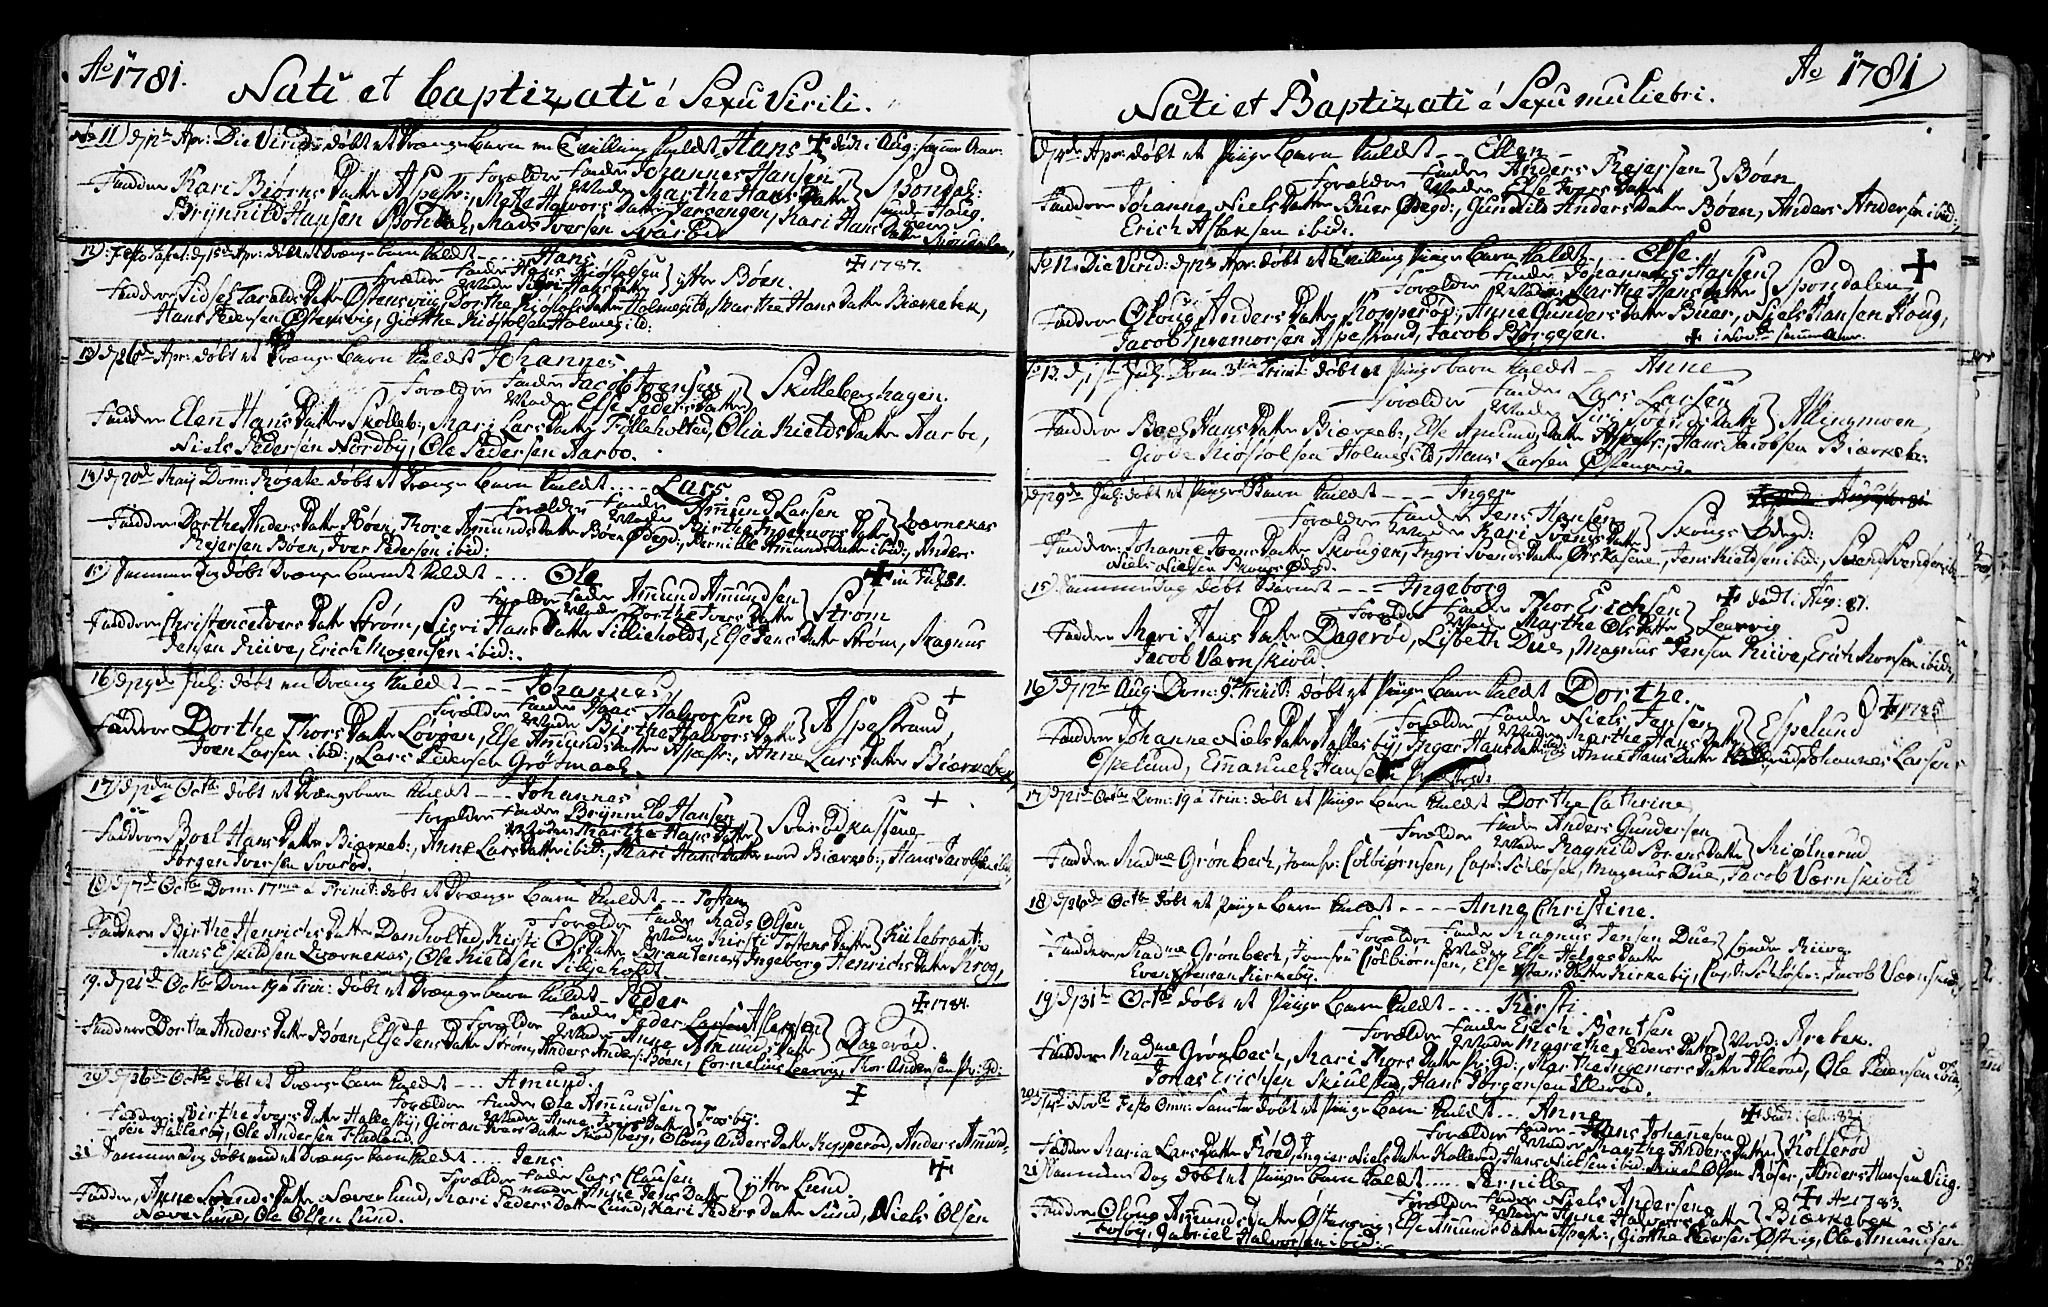 Ao 1781.
Nati et baptizati é Sexu Virili.
No 11) d. 12te Apr: Die Virid: døbt et Drænge barn en Tvilling kaldet Hans ✝ død i Aug: samme Aar.
Forældre Fader Johannes Hansen
Moder Marthe Hans Datter } Spondal:
Faddere Kari Biørns Datter Aspestr:, Mette Halvors Datter, Kari Hans Datter
Brynnild Hansen Spondal, Mads Iversen
12) Festo Pasch: d. 15de Apr: døbt et Drænge barn kaldet - - - Hans ✝ 1787.
Forældre Fader Hans Kiøstolsen
Moder Sigri Hans Datter } ytter Bøen.
Faddere Sidsel Taralds Datter Østensviig, Dorthe Kiøstols Datter Holmegild, Marthe Hans Datter Biærkebek,
Hans Pedersen Østensvig, Giøtthe Kiøstolsen Holmegild:
13) d. 26de Apr: døbt et Drænge barn kaldet Johannes
Forældre Fader Jacob Joensen
Moder Else Peders Datter } Skollebergshagen.
Faddere Elen Hans Datter Skolleb:, Mari Lars Datter Folleholted, Olia Kields Datter Aarbo,
Niels Pedersen Nordby, Ole Pedersen Aarbo.
14) d. 20de Maij Dom: Rogate døbt et Drænge barn kaldet - - - - Lars
Forældre Fader Amund Larsen
Moder Birthe Ingemors Datter } Qværnekas
Faddere Dorthe Anders Datter Bøen, Thore Amunds Datter Bøen Ødegd:, Pernille Amunds Datter ibid:, Anders
Rejersen Bøen, Iver Pedersen ibid:
15) Samme Dag døbt Drænge barnet kaldet - - - Ole ✝ in Julj 81.
Forældre Fader Amund Amundsen
Moder Dorthe Ivers Datter } Strøm
Faddere Christence Ivers Datter Strøm, Sigri Hans Datter Sillieholdt, Else Jens Datter Strøm, Magnus
Jensen Kiive, Erich Mogensen ibid:
16 d. 29de Julj: døbt en Dræng kaldet - - - - Johannes ✝
Forældre Fader Halvorsen
Moder Birthe Halvors Datter } Aspestrand,
Faddere Dorthe Thors Datter Løvøen, Else Amunds Datter Aspestr:, Anne Lars Datter Biærnebek,
Joen Larsen ibid:, Lars Pedersen Grøtmaal.
17) d. 2den Octbr døbt et Drænge barn kaldet - - - Johannes ✝
Forældre Fader Brynnild Hansen
Moder Marthe Hans Datter } Svarødkassene
Faddere Boel Hans Datter Biærkeb:, Anne Lars Datter ibid:, Mari Hans Datter nord Biærkeb:, Hans Jacobsen ibid:,
Jørgen Iversen Svarød.
18) d. 7de Octbr Dom: 17ma á Trinit: døbt et Drænge barn kaldet - - - Tosten
Forældre Fader Mads Olsen
Moder Kirsti Tostens Datter } Kiilebraate
Faddere Birthe Henrichs Datter Damholted, Kirsti Ols Datter Brautenes, Ingeborg Henrichs Datter Krog,
Hans Eskildsen Qværnekas, Ole Kieldsen Silljeholdt
19. d. 21de Octbr Dom 19 á Trin: døbt et Drænge barn kaldet - Peder ✝ 1784.
Forældre Fader Peder Larsen
Moder Anne Amunds Datter } Dagerød.
Faddere Dorthe Anders Datter Bøen, Else Jens Datter Strøm, Anders Anders: Bøen, Cornelius Leervig, Thor Andersen Pr: gd:
20) d. 26de Octbr døbt et Drænge barn kaldet - - - Amund. ✝
Forældre Fader Ole Amundsen
Moder Anne Ivers Datter } Fosby:
Faddere: Birthe Ivers Datter Hallesby, Gioran Ivers Datter Skodsberg, Oloug Anders Datter Kopperød, Anders Amund-
sen Hallesby, Ole Andersen Fladland.
21 Samme Dag døbt med et Drænge barn kaldet - - - - Jens ✝
Forældre Fader Lars Clausen
Moder Anne Jens Datter } ytter Lund.
Faddere, Anne Svends Datter Næverlund, Mari Peders Datter Lund, Kari Peders Datter Lund, Niels Olsen
Næverlund, Ole Olsen Lund.
Ao 1781
Nati et Baptizati é Sexu muliebri.
d. 4de Apr: døbt et Piige barn kaldet - - Ellen
Forældre Fader Anders Rejersen
Moder Else Ivers Datter } Bøen
Faddere Johanne Niels Datter Buer Ødegd:, Gunild Anders Datter Bøen, Anders Andersen ibid:,
Erich Aslaksen ibid:
No 12. Die Virid: d. 12te Apr: døbt et Tvilling Piige barn kaldet . . Else ✝
Forældre Fader Johannes Hansen
Moder Marthe Hans Datter } Spondalen
Faddere Oloug Anders Datter Kopperød:, Anne Gunders Datter Buer, Niels Hansen Houg,
Jacob Ingemorsen Aspestrand, Jacob Børgesen. ✝ i samme Aar.
No 13. d. 1ste Julj: Dom 3tia Trinit: døbt et Piige barn kaldet - Anne
Forældre Fader Lars Larsen
Moder Siri Svends Datter } Allingmoen
Faddere Boel Hans Datter Biærkeb:, Else Amunds Datter Aspestr:, Hans Jacobsen Biærkeb:
Giøtte Kiøstolsen Holmegild, Hans Larsen Østensvig.
d. 29de Julj: døbt et Piige Barn kaldet - - - - Inger
Forældre Fader Jens Hansen
Moder Kari Svends Datter } Skougs Ødegd:
Faddere: Johanne Joens Datter Skougen, Ingri Svends Datter Ørskasene, Jens Kieldsen ibid:, Svend Svendsen ibid:
Niels Nielsen Skougs Ødegd.
15) Samme Dag døbt Barnet - - - Ingeborg ✝ død i Aug: 81.
Forældre Fader Thor Erichsen
Moder Marthe Ols Datter } Leervig
Faddere Mari Hans Datter Dagerød, Lisbeth Due, Magnus Jensen Kiive, Erich Monsen ibid:,
Jacob Værnskiold.
16) d. 12te Aug: Dom: 9na Trinit: døbt et Piige barn kaldet Dorthe. ✝ 1785
Forældre Fader Niels Jensen
Moder Marthe Hans Datter } Espelund
Faddere Johanne Niels Datter Hallesby, Inger Hans Datter ibid:, Anne Hans Datter Johannes Larsen
Espelund, Emanuel Hansen
17) d. 21de Octbr Dom: 19 á Trin: døbt et Piige barn kaldet Dorthe Cathrine
Forældre Fader Anders Gundersen
Moder Ragnild Sørens Datter } Miølnerud
Faddere Madme Grønbech, Jomfr: Colbiørnsen, Capt: Schløser, Magnus Due, Jacob Værnskiold
18) d. 26de Octbr døbt et Piige barn kaldet - - - - Anne Christine.
Forældre Fader Magnus Jensen Due
Moder Else Helges Datter } Synder Kiive
Faddere, Madme Grønbech, Jomfru Colbiørnsen, Else Hans Datter Kirkeby, Capt: Schløser, Jacob Værnskiold
Even Kirkeby.
19) d. 31te Octbr døbt et Piige barn kaldet - - - - Kirsti
Forældre Fader Erich Bentsen
Moder Magrethe Peders Datter } Nord: Arebek.
Faddere Madme Grønbech, Mari Thors Datter Pr: Gd:, Marthe Ingemors Datter Ellerød, Ole Pedersen ibid,
Jonas Erichsen Skiulstad, Hans Jørgensen Ellerød.
20) d. 4de Novbr Festo Omn: Sanctor: døbt et Piige barn kaldet - - - Anne ✝ død i Febr: 82.
Forældre Fader Hans Johannesen
Moder Marthe Anders Datter } Kollerød
Faddere Maria Lars Datter Røed, Ingier Niels Datter Kollerød, Hans Nielsen ibid: Olsen Røser, Anders Hansen Viig.
21) Samme Dag døbt et Piige barn kaldet - - - - Pernille ✝ Ao 1783.
Forældre Fader Niels Andersen
Moder Anne Halvors Datter } Biærkebek
Faddere Oloug Amunds Datter Østensvig, Else Amunds Datter Aspestr:, Giøtthe Pedersen Østvig, Ole Amundsen
Fosby, Gabriel Halvorsen ibid: